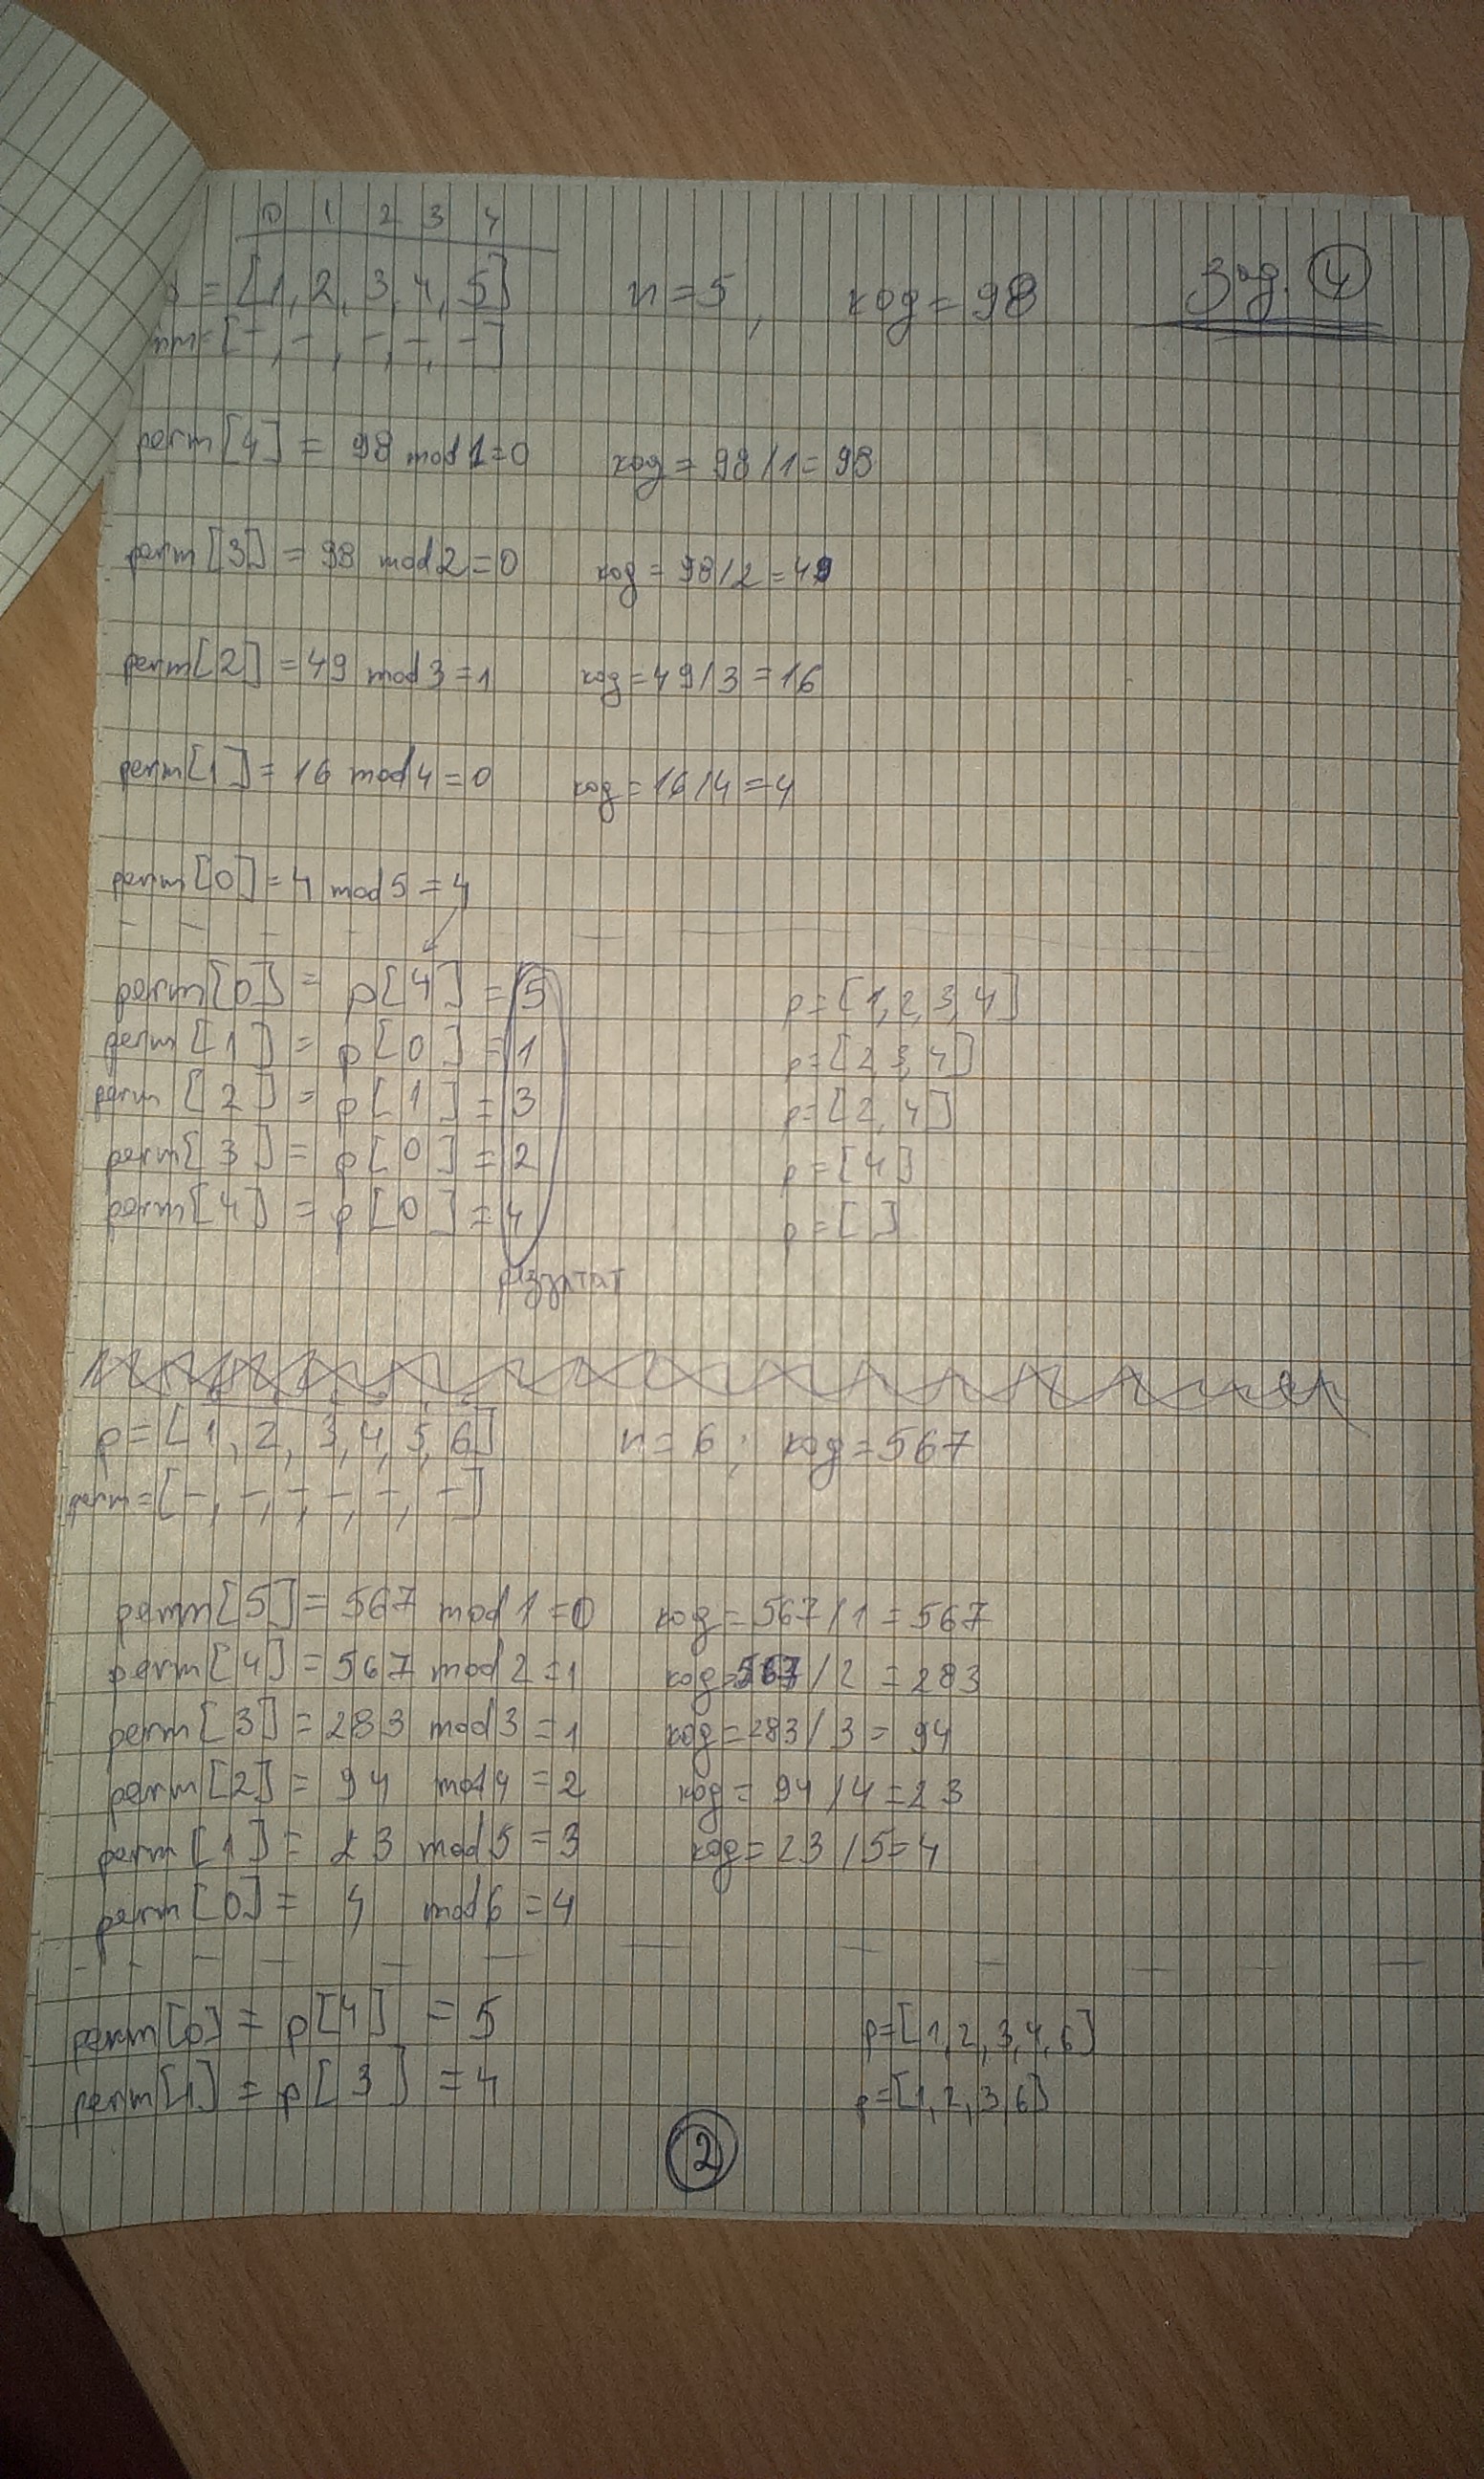 0 1 2 3 4
= [1, 2, 3, 4, 5] n = 5, код = 98 Зад. 4
= [-, -, -, -, -]
perm[4] = 98 mod 1 = 0 код = 98 / 1 = 98
perm[3] = 98 mod 2 = 0 код = 98 / 2 = 49
perm[2] = 49 mod 3 = 1 код = 49 / 3 = 16
perm[1] = 16 mod 4 = 0 код = 16 / 4 = 4
perm[0] = 4 mod 5 = 4
perm[0] = p[4] = 5 p = [1, 2, 3, 4]
perm[1] = p[0] = 1 p = [2 3, 4]
perm[2] = p[1] = 3 p = [2, 4]
perm[3] = p[0] = 2 p = [4]
perm[4] = p[0] = 4 p = [ ]
p = [1, 2, 3, 4, 5, 6] n = 6; код = 567
perm = [-, -, -, -, -, -]
perm[5] = 567 mod 1 = 0 код = 567 / 1 = 567
perm[4] = 567 mod 2 = 1 код = 567 / 2 = 283
perm[3] = 283 mod 3 = 1 код = 283 / 3 = 94
perm[2] = 94 mod 4 = 2 код = 94 / 4 = 23
perm[1] = 23 mod 5 = 3 код = 23 / 5 = 4
perm[0] = 4 mod 6 = 4
perm[0] = p[4] = 5 p = [1, 2, 3, 4, 6]
perm[1] = p[3] = 4 p = [1, 2, 3, 6]
2